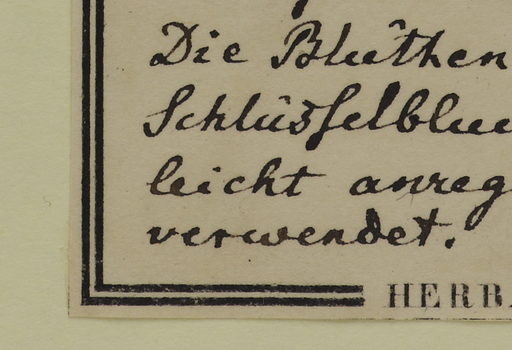 Die Blüthen
Schlüsselblu
leicht anreg
verwendet.
HERBA